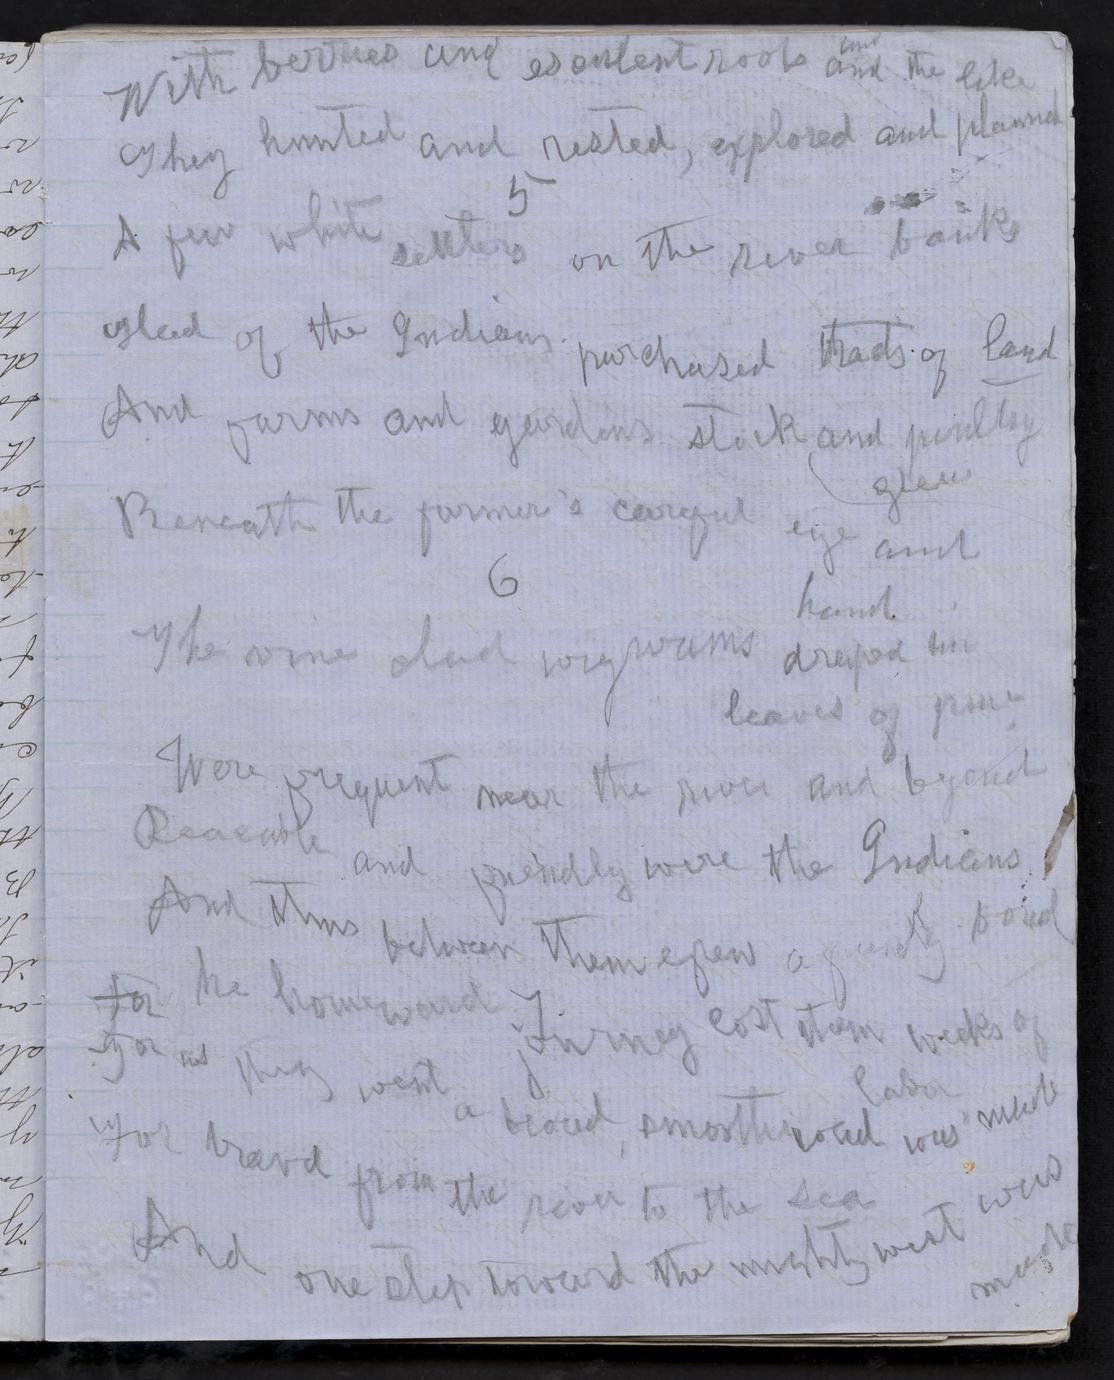 With berries and esculent roots and and the like
They hunted and rested, explored and planned
5
A few white settlers on the river banks
Glad of the Indians purchased tracts of land
And farms and gardens stock and poultry
grew
Beneath the farmer's careful eye and
hand.
6
The vine clad wigwams draped in
leaves of pine
Were frequent near the river and beyond
Peaceable and friendly were the Indians
And thus between them grew a friendly bond
For the homeward Jurney cost them weeks of
labor
For as they went a broad, smooth road was made
For travel from the river to the sea
And one step toward the mighty west was
made